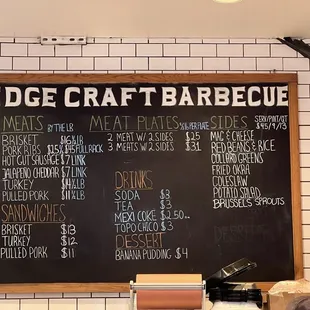 DGE CRAFT BARBECUE
MEATS BY THE LB
BRISKET
PORK RIBS FULL RACK
HOT GUT SAUSAGE $7 LINK
JALAPEÑO CHEDDAR $7 LINK
TURKEY
PULLED PORK
SANDWICHES
BRISKET $13
TURKEY $12
PULLED PORK $11
MEAT PLATES
2 MEAT W/ 2 SIDES $25
3 MEATS W/ 2 SIDES $31
DRINKS
SODA $3
TEA $3
MEXI COKE $2.50
TOPO CHICO $3
DESSERT
BANANA PUDDING $4
SIDES
MAC & CHEESE
RED BEANS & RICE
COLLARD GREENS
FRIED OKRA
COLESLAW
POTATO SALAD
BRUSSELS SPROUTS